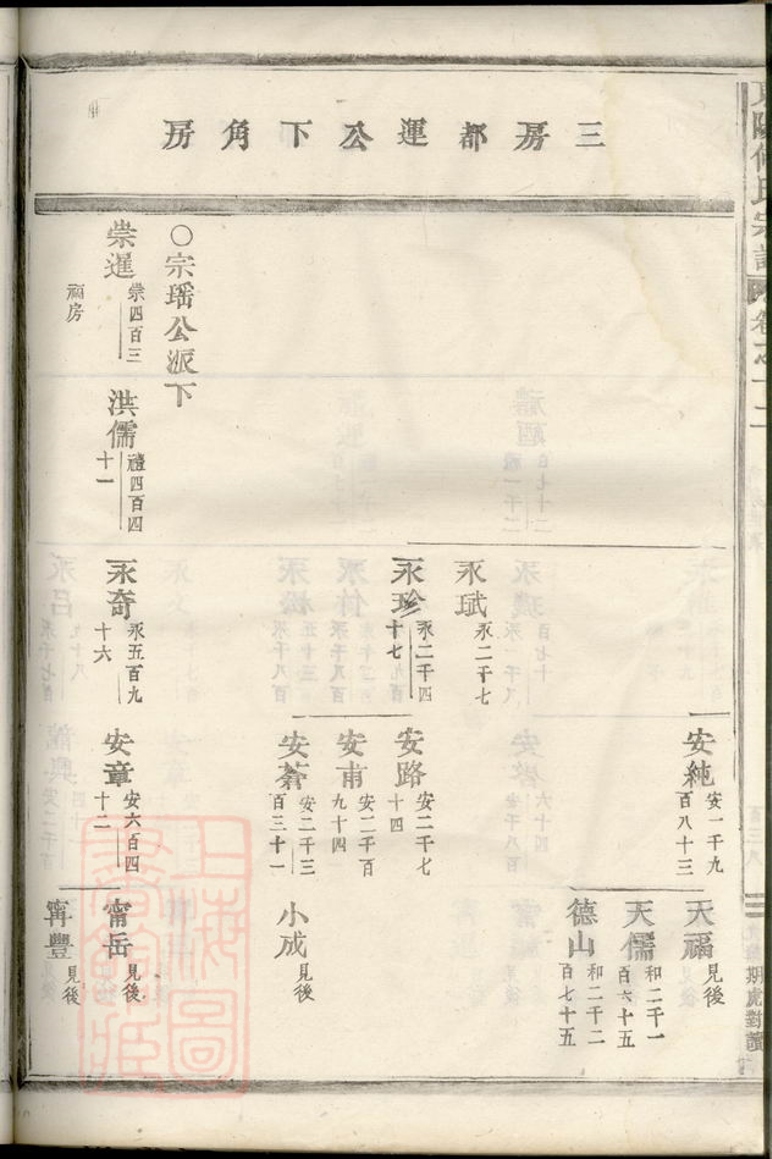 三房都運公下角房
安純
安一千九
百八十三
天福
見後
天儒
和二千一
百六十五
德山
和二千二
百七十五
永珷
永二千七
永珍
永二千四
十七
安路
安二千七
十四
安甫
安二千百
九十四
安蒼
安二千三
百三十一
小成
見後
○宗瑶公派下
崇暹
崇四百三
洪儒
禮四百四
十一
永奇
永五百九
十六
安章
安六百四
十二
甯岳
見後
甯豐
見後
房
上海圖書館藏